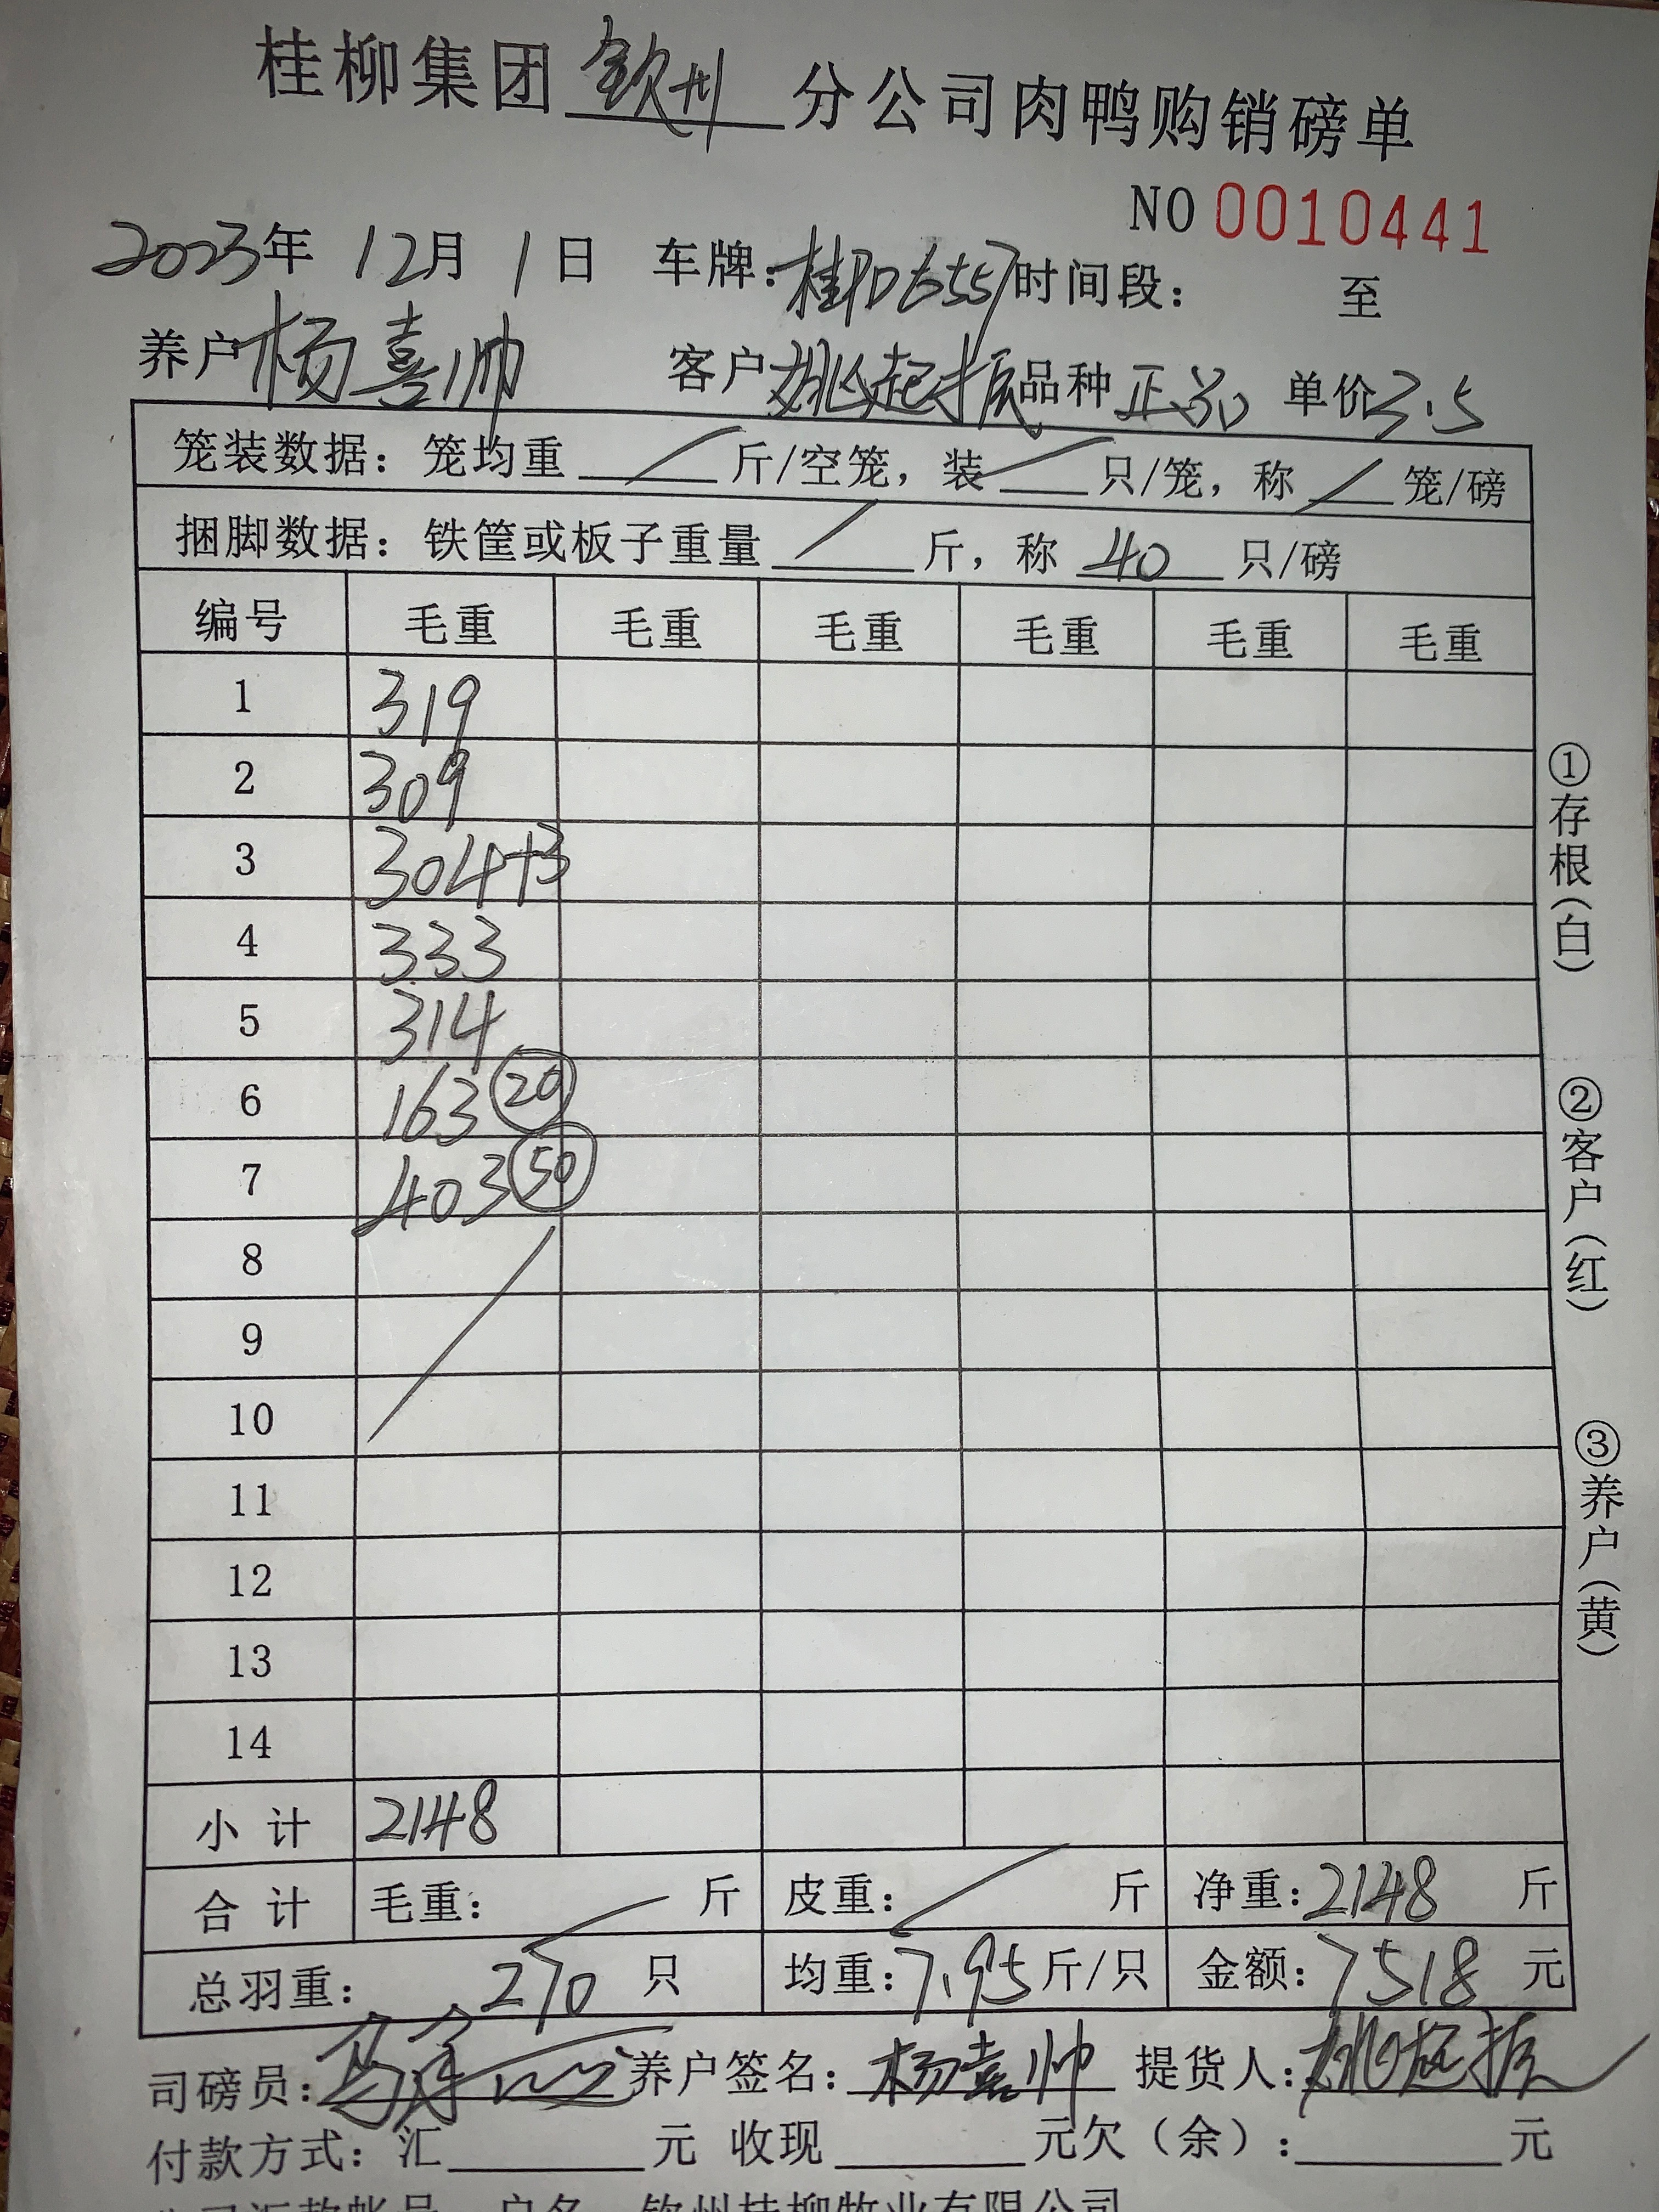 桂柳集团钦州分公司肉鸭购销磅单
NO 0010441
2023年 12月 1日 车牌:桂 D6557 时间段: 至
养户 杨喜帅 客户 姚起振 品种 正品 单价 3.5
笼装数据: 笼均重 / 斤/空笼, 装 / 只/笼, 称 / 笼/磅
捆脚数据: 铁筐或板子重量 / 斤, 称 40 只/磅
编号 毛重 毛重 毛重 毛重 毛重 毛重
1 319
2 309
3 304+3
4 333
5 314
6 163 ⑳
7 403 ㊿
8
9
10
11
12
13
14
小计 2148
合计 毛重: / 斤 皮重: / 斤 净重: 2148 斤
总羽重: 270 只 均重: 7.95 斤/只 金额: 7518 元
司磅员: 养户签名: 杨喜帅 提货人: 姚起振
付款方式: 汇 元 收现 元欠(余): 元
公司汇款帐号 户名 钦州桂柳牧业有限公司
①存根(白)
②客户(红)
③养户(黄)